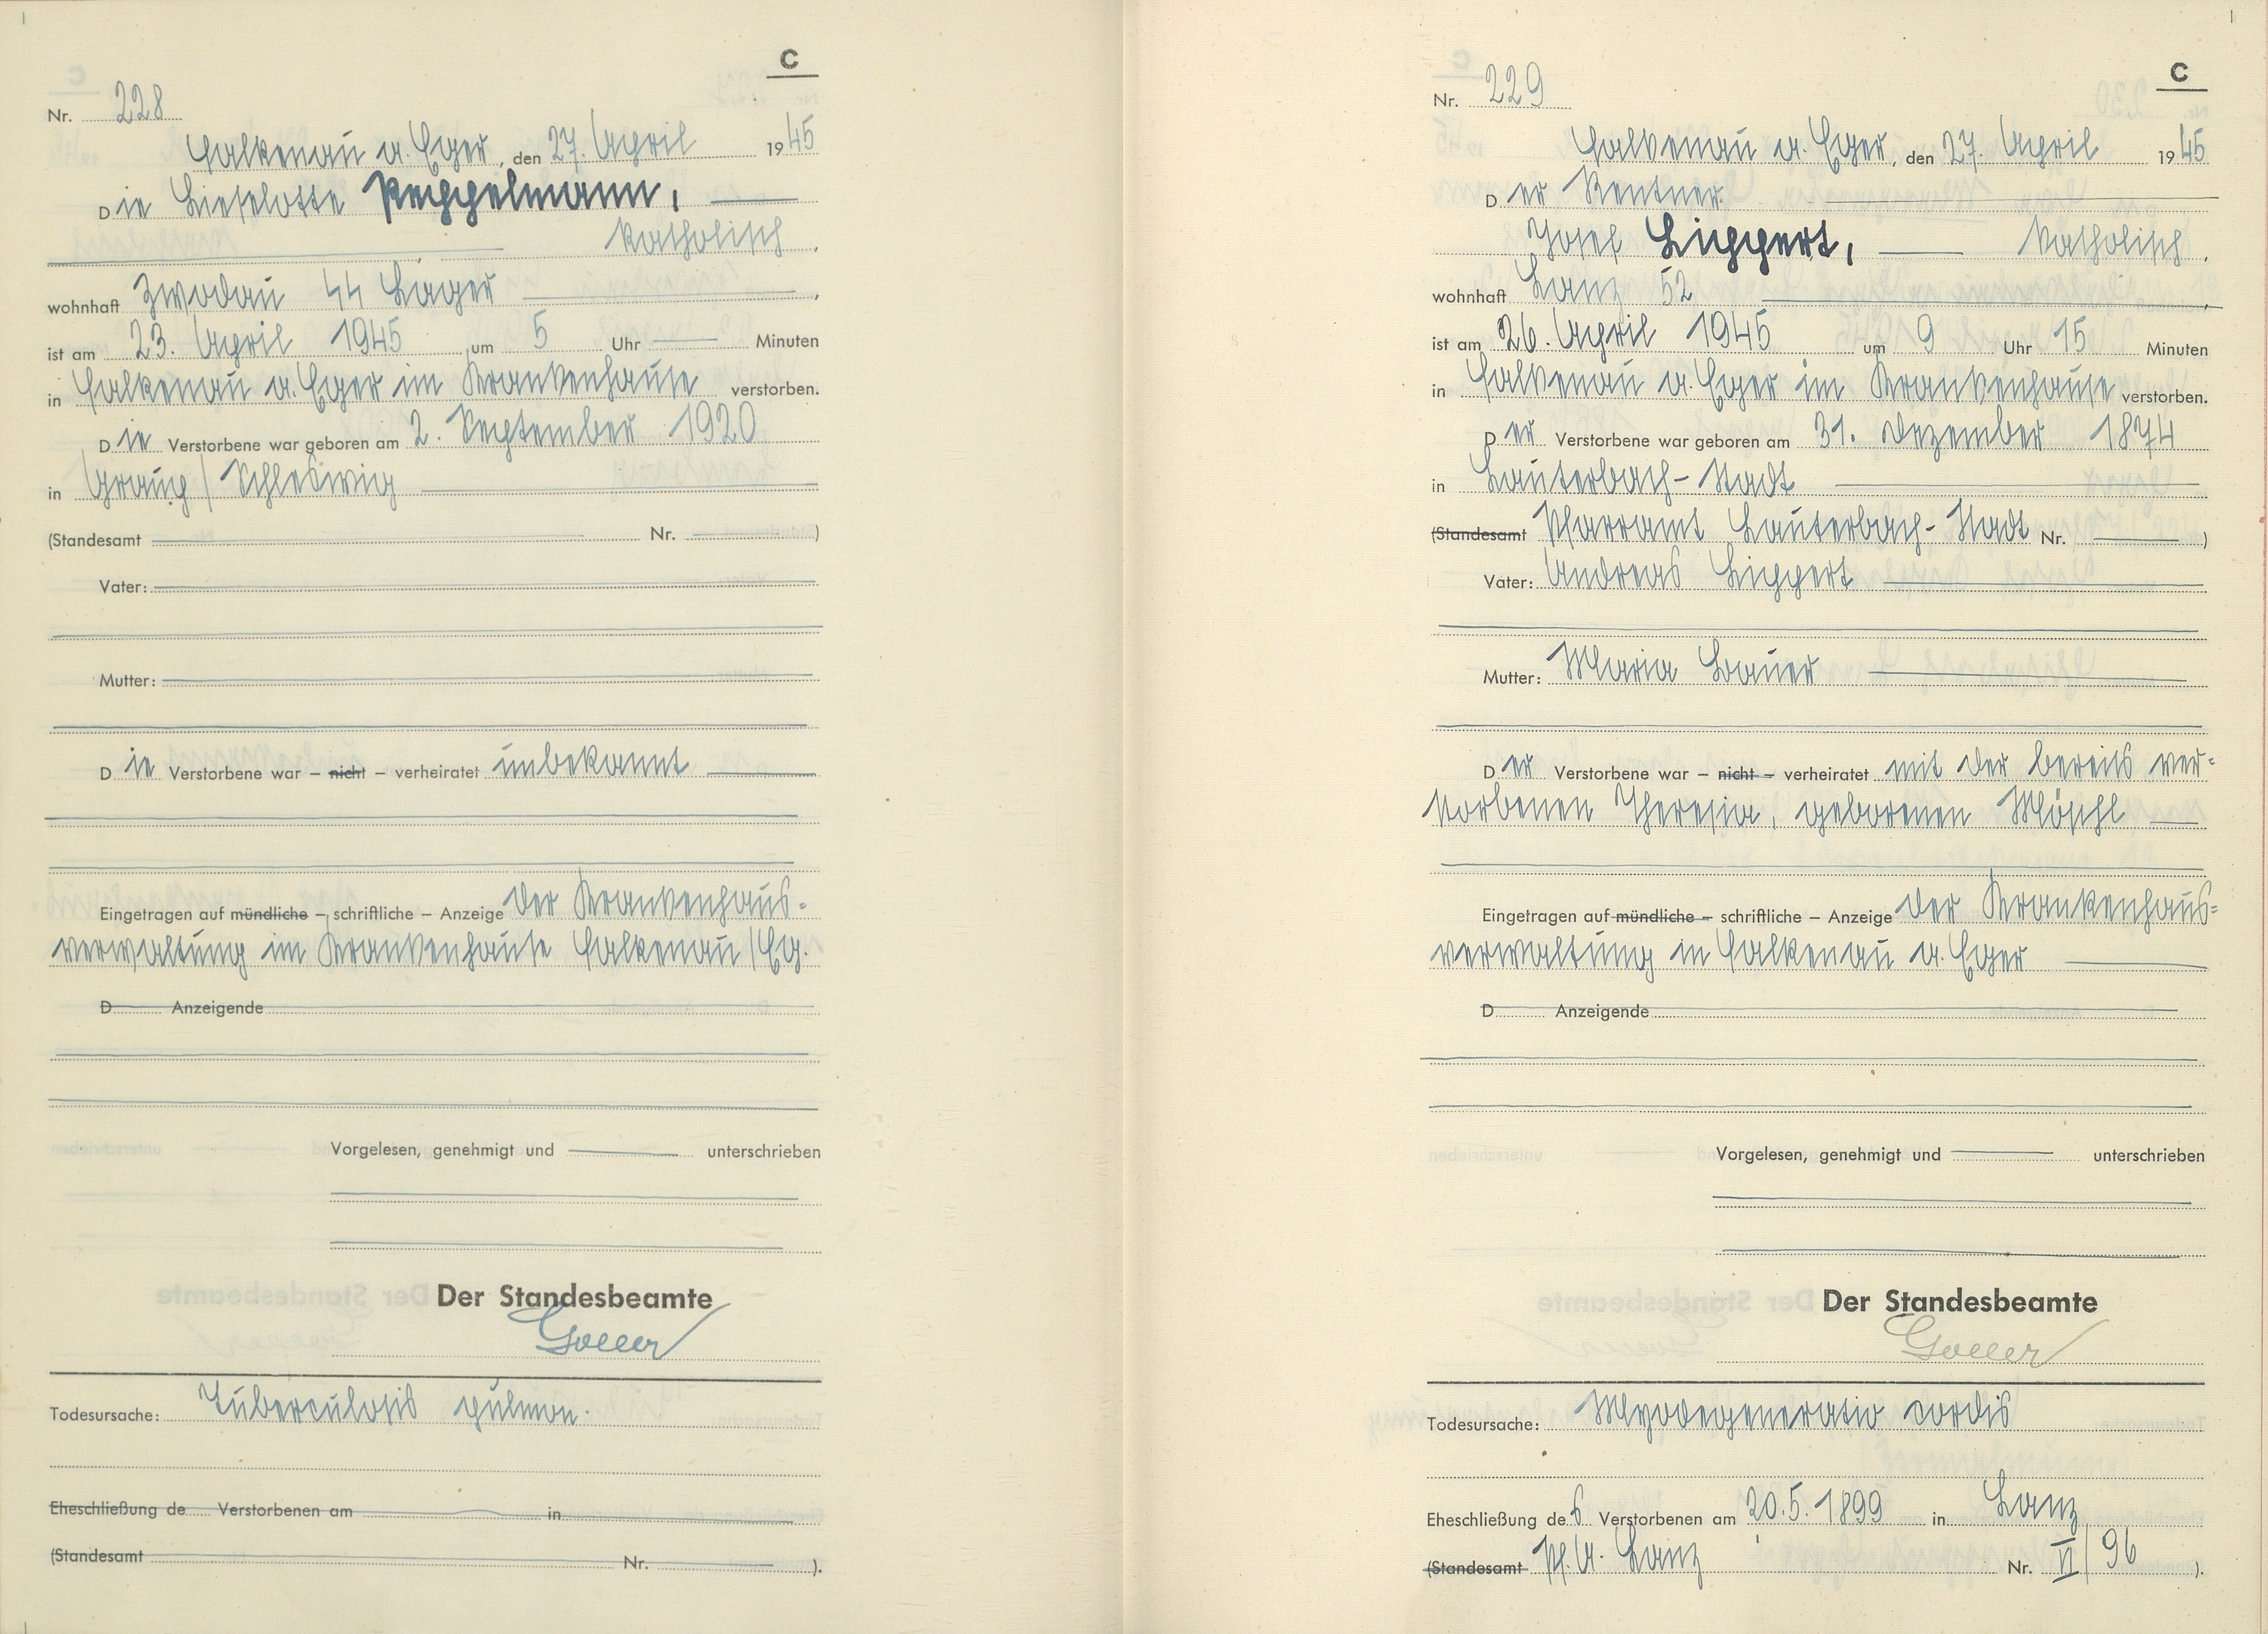 C
Nr. 228
Falkenau a. Eger, den 27. April 1945
Die Lieselotte Peppelmann,
katholisch,
wohnhaft Zwodau SS Lager,
ist am 23. April 1945 um 5 Uhr Minuten
in Falkenau a. Eger im Krankenhause verstorben.
Die Verstorbene war geboren am 2. September 1920
in / Schleswig
(Standesamt Nr. )
Vater:
Mutter:
Die Verstorbene war – nicht – verheiratet unbekannt
Eingetragen auf mündliche – schriftliche – Anzeige der Krankenhaus-
verwaltung im Krankenhause Falkenau/Eg.
D Anzeigende
Vorgelesen, genehmigt und unterschrieben
Der Standesbeamte
Goller
Todesursache: Tuberculosis pulmon.
Eheschließung de Verstorbenen am in
(Standesamt Nr. ).
C
Nr. 229
Falkenau a. Eger, den 27. April 1945
Der Rentner
Josef Lippert, katholisch,
wohnhaft Lanz 52,
ist am 26. April 1945 um 9 Uhr 15 Minuten
in Falkenau a. Eger im Krankenhause verstorben.
Der Verstorbene war geboren am 31. Dezember 1874
in Lauterbach-Stadt
(Standesamt Pfarramt Lauterbach-Stadt Nr. )
Vater: Andreas Lippert
Mutter: Maria Bauer
Der Verstorbene war – nicht – verheiratet mit der bereits ver-
storbenen Theresia, geborenen Möschl
Eingetragen auf mündliche – schriftliche – Anzeige der Krankenhaus-
verwaltung in Falkenau a. Eger
D Anzeigende
Vorgelesen, genehmigt und unterschrieben
Der Standesbeamte
Goller
Todesursache: Myodegeneratio cordis
Eheschließung des Verstorbenen am 20.5.1899 in Lanz
(Standesamt Pf.A. Lanz Nr. VI/96 ).